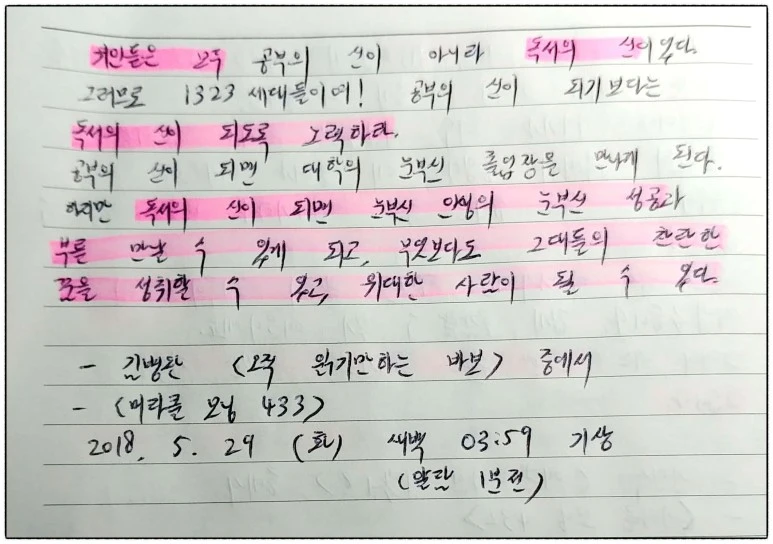 거인들은 모두 공부의 신이 아니라 독서의 신이었다.
그러므로 1323 세대들이여! 공부의 신이 되기보다는
독서의 신이 되도록 노력하라.
공부의 신이 되면 대학의 눈부신 졸업장을 만나게 된다.
하지만 독서의 신이 되면 눈부신 인생의 눈부신 성공과
부를 만날 수 있게 되고, 무엇보다도 그대들의 찬란한
꿈을 성취할 수 있고, 위대한 사람이 될 수 있다.
- 김병완 <오직 읽기만하는 바보> 중에서
- <미라클 모닝 433>
2018. 5. 29 (화) 새벽 03:59 기상
(알람 1분전)